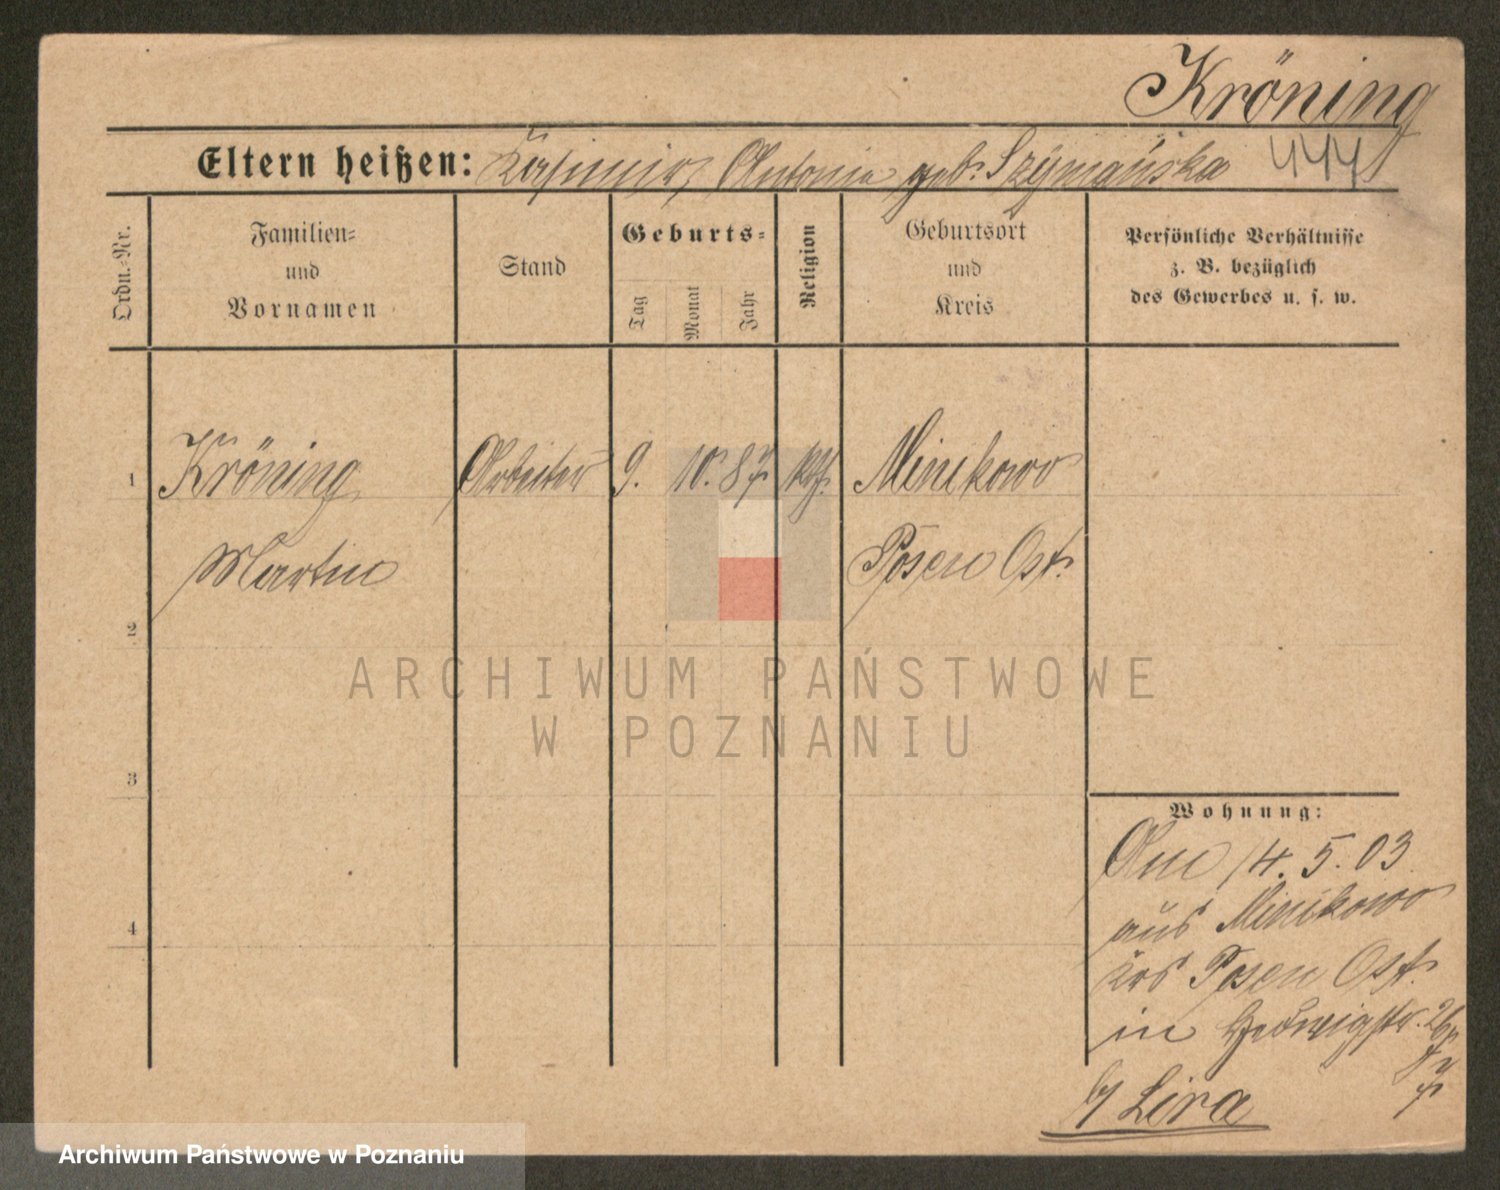 Kröning
444
Eltern heißen: Kasimir, Antonie geb. Szymańska
Ordn.-Nr.
Familien-
und
Vornamen
Stand
Geburts-
Tag
Monat
Jahr
Religion
Geburtsort
und
Kreis
Persönliche Verhältnisse
z. B. bezüglich
des Gewerbes u. s. w.
1 Kröning Arbeiter 9. 10. 87 kth. Minikowo
Martin Posen Ost.
2
3
4
Wohnung:
Am 14. 5. 03
aus Minikowo
Krs Posen Ost.
in Hedwigstr. 26
b/ Lira
ARCHIWUM PAŃSTWOWE
W POZNANIU
Archiwum Państwowe w Poznaniu